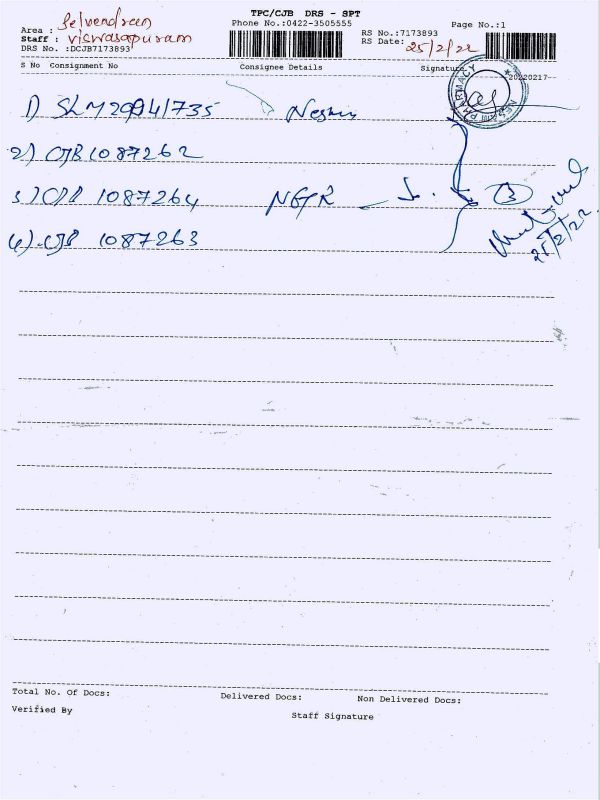 TPC/CJB DRS - SPT
Area : Selvendren
Phone No.:0422-3505555
Page No.:1
Staff : Viswasapuram
RS No.:7173893
DRS No. :DCJB7173893
RS Date: 25/2/22
S No Consignment No Consignee Details Signature
20220217-
NESAM PHARMACY
1) SLM
2) CJB 1087262
3) CJB 1087264
4) CJB 1087263
3
25/2/22
Total No. Of Docs: Delivered Docs: Non Delivered Docs:
Verified By
Staff Signature